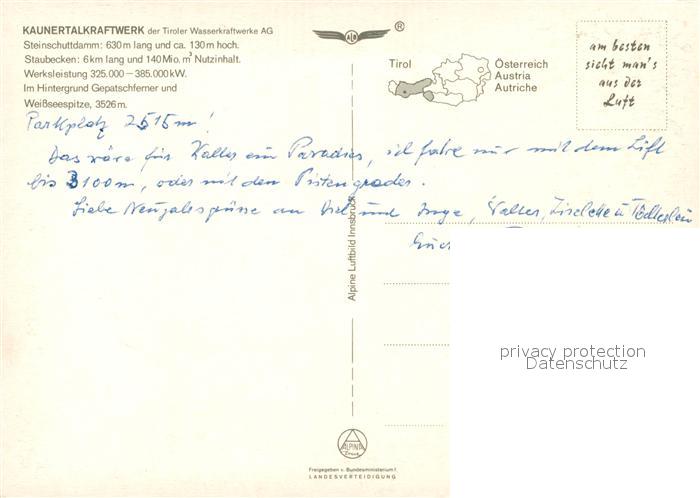 KAUNERTALKRAFTWERK der Tiroler Wasserkraftwerke AG
Steinschuttdamm: 630 m lang und ca. 130 m hoch.
Staubecken: 6 km lang und 140 Mio. m³ Nutzinhalt.
Werksleistung 325.000 – 385.000 kW.
Im Hintergrund Gepatschferner und
Weißseespitze, 3526 m.
ALB
®
Tirol
Österreich
Austria
Autriche
am besten
sieht man's
aus der
Luft
Parkplatz 2515 m!
Das wäre für Walter ein Paradies, ich fahre nur mit dem Lift
bis 3100 m, oder mit den
Liebe Neujahrsgrüsse an Dich und Inge, Walter, Liselotte u Töchterlein
Alpine Luftbild Innsbruck
privacy protection
Datenschutz
ALPINA
Druck
Freigegeben v. Bundesministerium f.
LANDESVERTEIDIGUNG